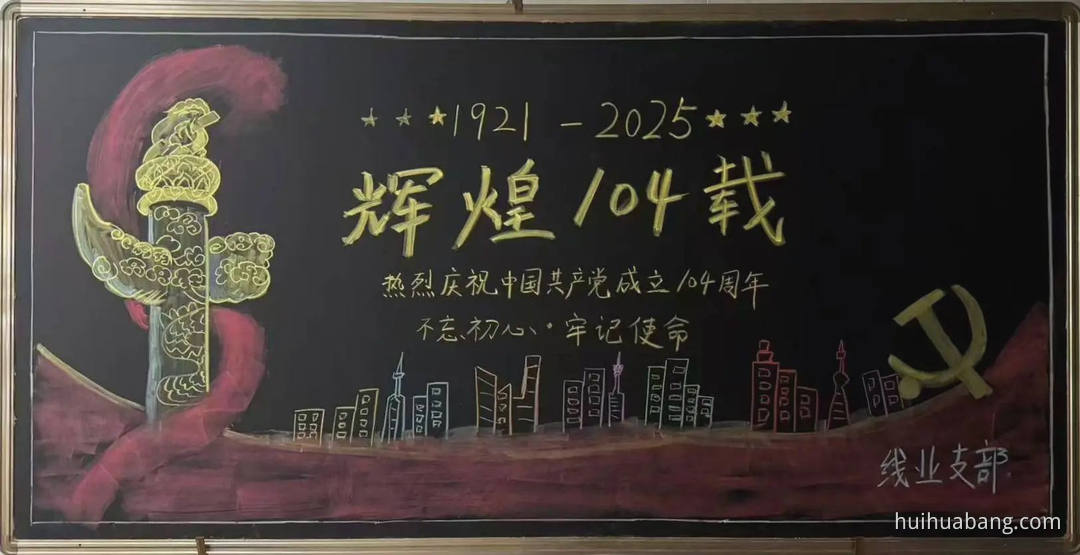 1921-2025
辉煌104载
热烈庆祝中国共产党成立104周年
不忘初心·牢记使命
线业支部
huihuabang.com